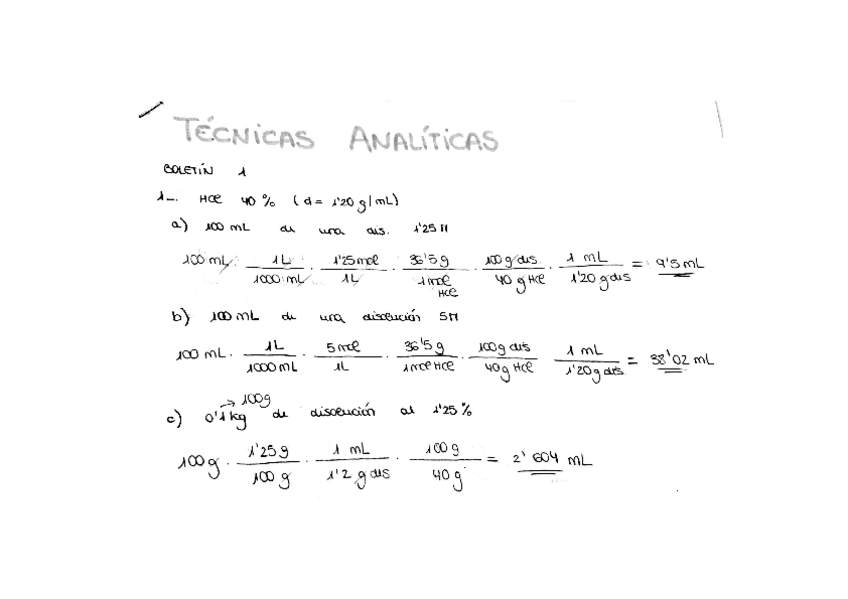 TÉCNICAS ANALÍTICAS
BOLETÍN 1
1-. HCl 40 % (d = 1'20 g/mL)
a) 100 mL de una dis. 1'25 M
100 mL · 1L/1000 mL · 1'25 mol/1L · 36'5 g/1 mol HCl · 100 g dis./40 g HCl · 1 mL/1'20 g dis = 9'5 mL
b) 100 mL de una disolución 5M
100 mL · 1L/1000 mL · 5 mol/1L · 36'5 g/1 mol HCl · 100 g dis/40 g HCl 1 mL/1'20 g dis. = 38'02 mL
→ 100g
c) 0'1 kg de disolución al 1'25 %
100 g · 1'25 g/100 g · 1 mL/1'2 g dis · 100 g/40 g = 2'604 mL